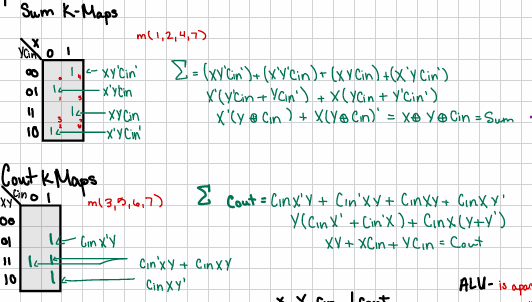 Sum K-Maps
m(1,2,4,7)
X
YCin 0 1
00 1 XY'Cin'
01 1 X'Y'Cin
11 1 XYCin
10 1 X'YCin'
Σ = (XY'Cin') + (X'Y'Cin) + (XYCin) + (X'YCin')
X'(Y'Cin + YCin') + X(YCin + Y'Cin')
X'(Y⊕Cin) + X(Y⊕Cin)' = X⊕Y⊕Cin = Sum
Cout K Maps
m(3,5,6,7)
Cin
XY 0 1
00
01 1 CinX'Y
11 1 1 Cin'XY + CinXY
10 1 CinXY'
Σ Cout = CinX'Y + Cin'XY + CinXY + CinXY'
Y(CinX' + Cin'X) + CinX(Y+Y')
XY + XCin + YCin = Cout
ALU- is apar
X Y Cin Cout